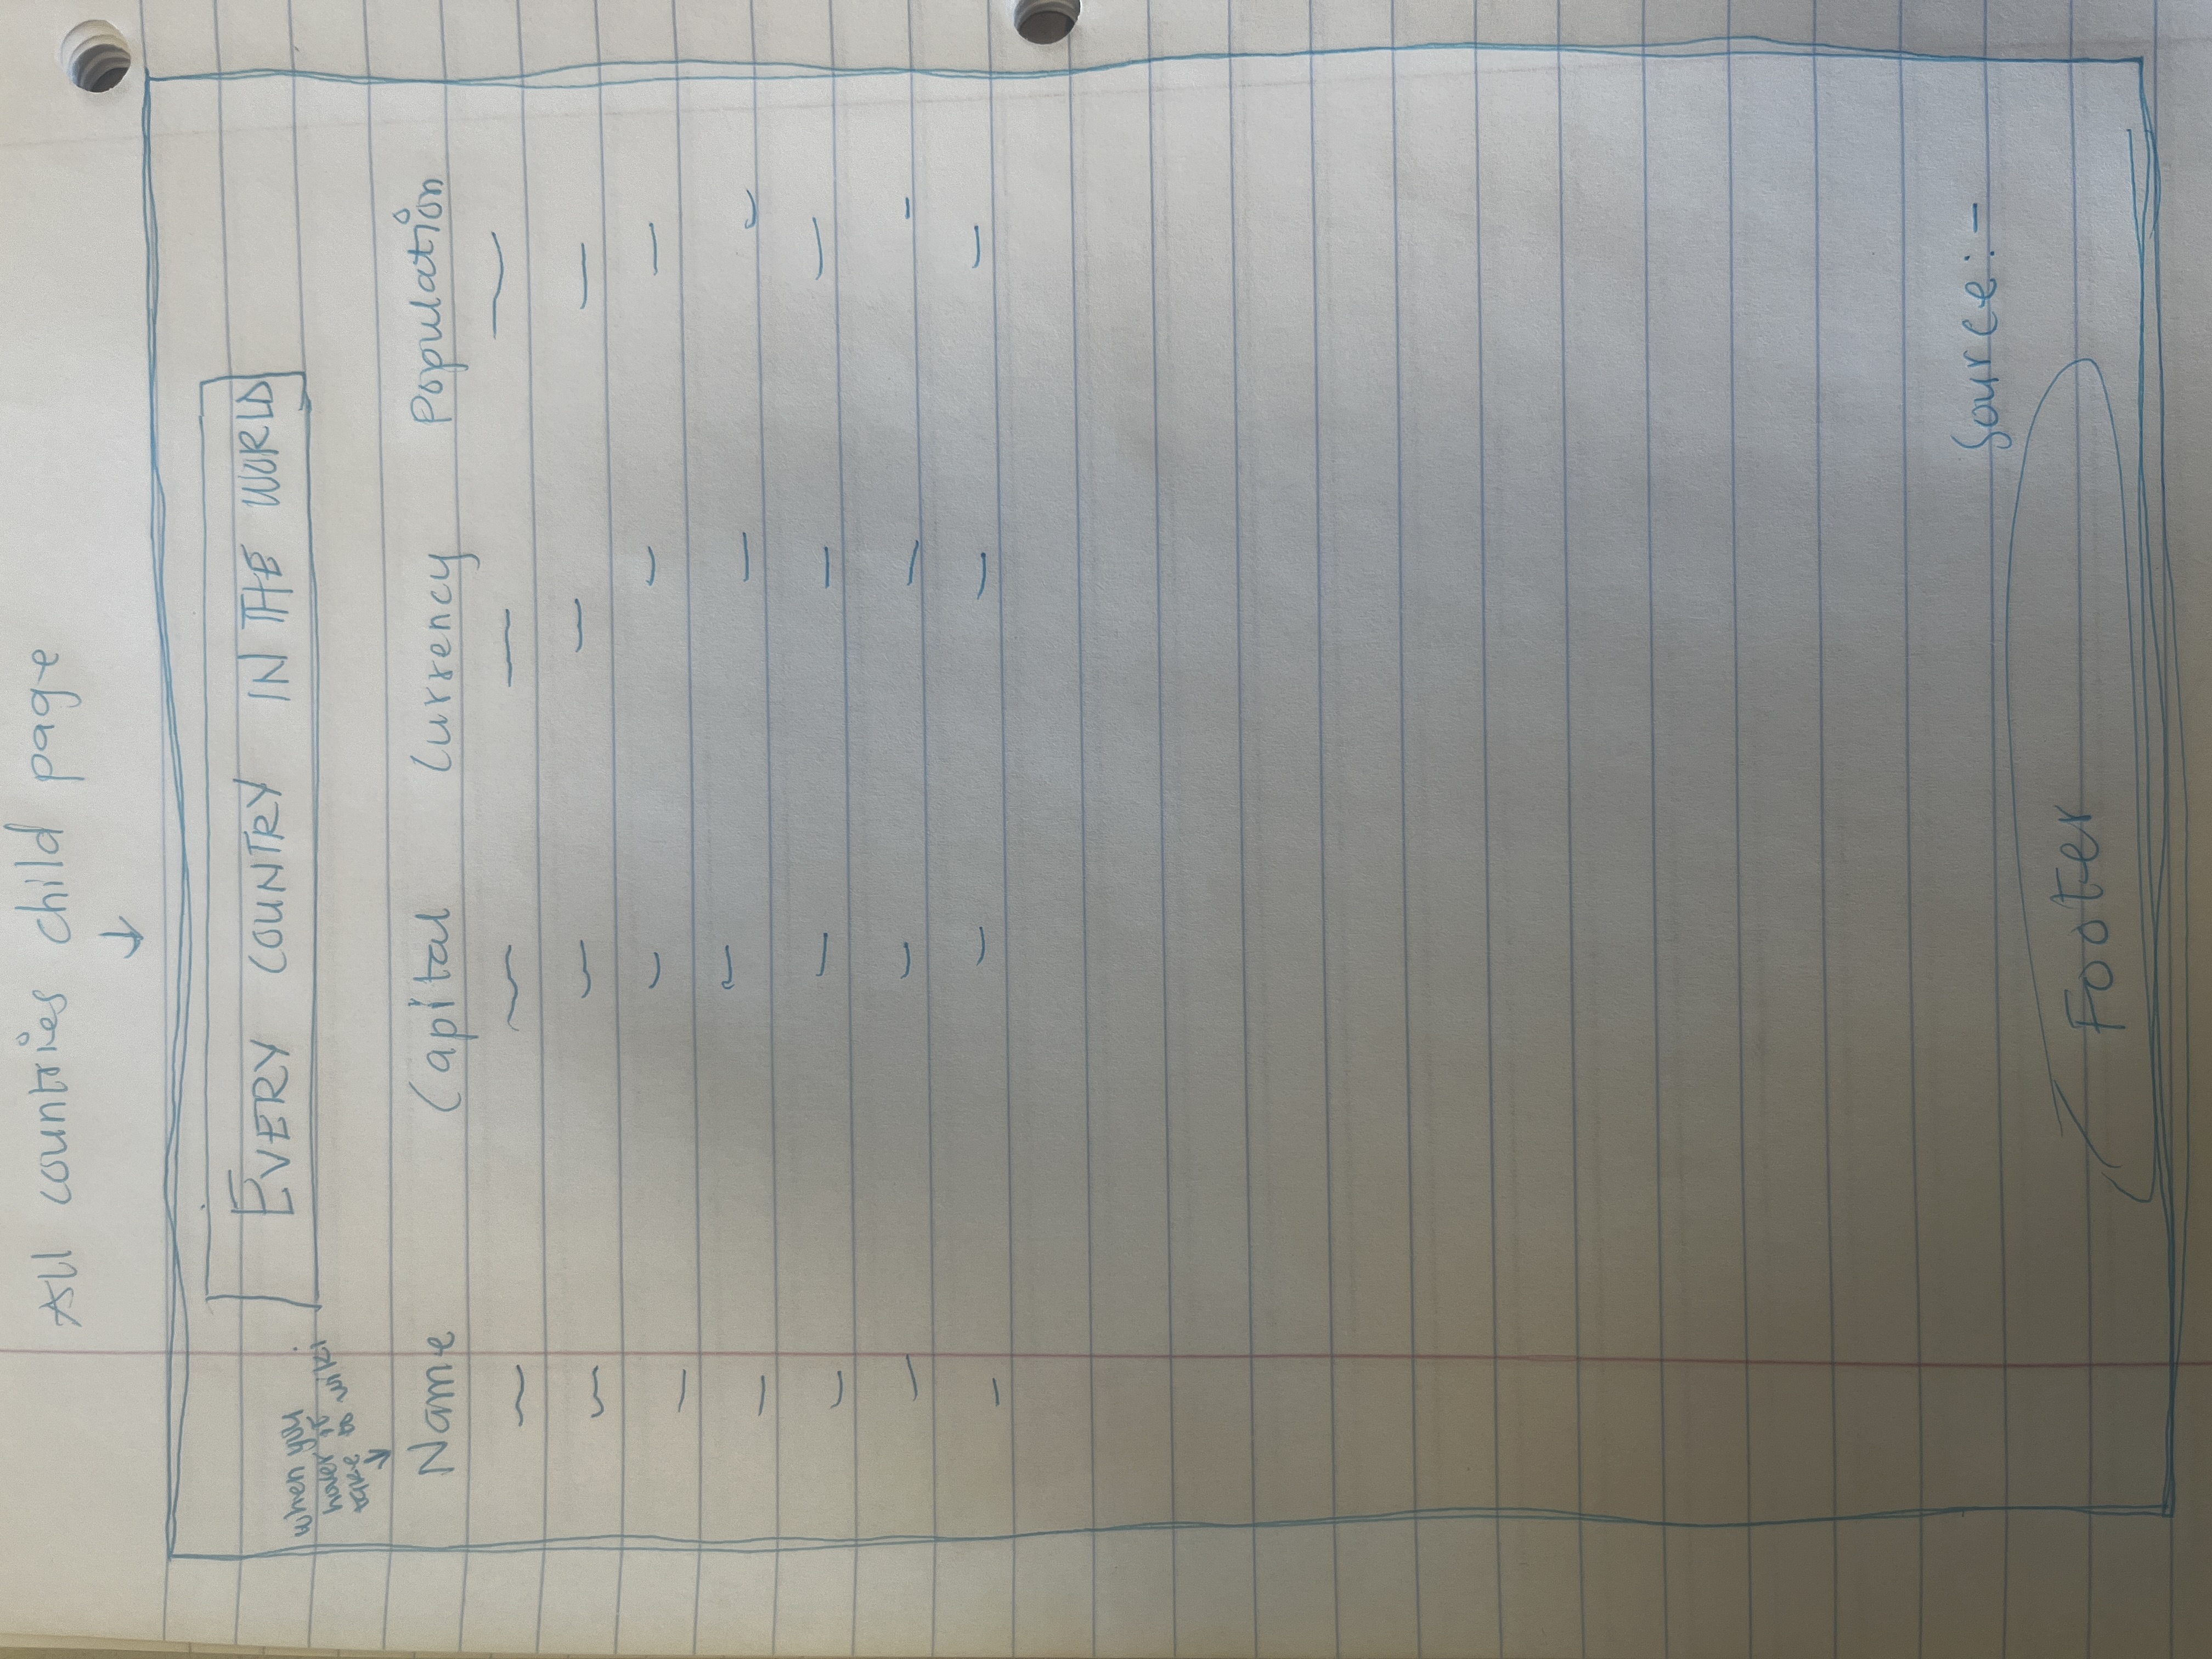 All countries child page
EVERY COUNTRY IN THE WORLD
when you
hover it
take to wiki
Name Capital Currency Population
Source: -
Footer